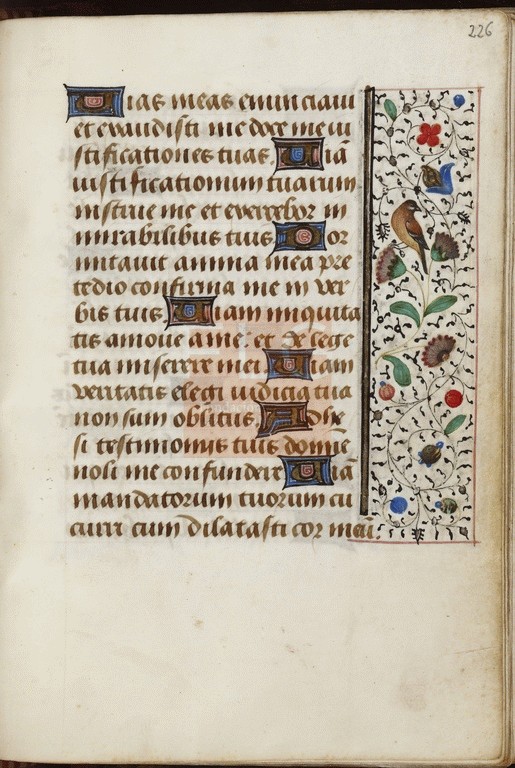 226
Vias meas enunciaui
et exaudisti me doce me iu
stificationes tuas. Viā
iustificationum tuarum
instrue me et exercebor in
mirabilibus tuis Dor
mitauit anima mea pre
tedio confirma me in ver
bis tuis Viam iniquita
tis amoue a me: et de lege
tua miserere mei. Viam
veritatis elegi iudicia tua
non sum oblitus Adhe
si testimoniis tuis domine
noli me confundere Viā
mandatorum tuorum cu
curri cum dilatasti cor meū.